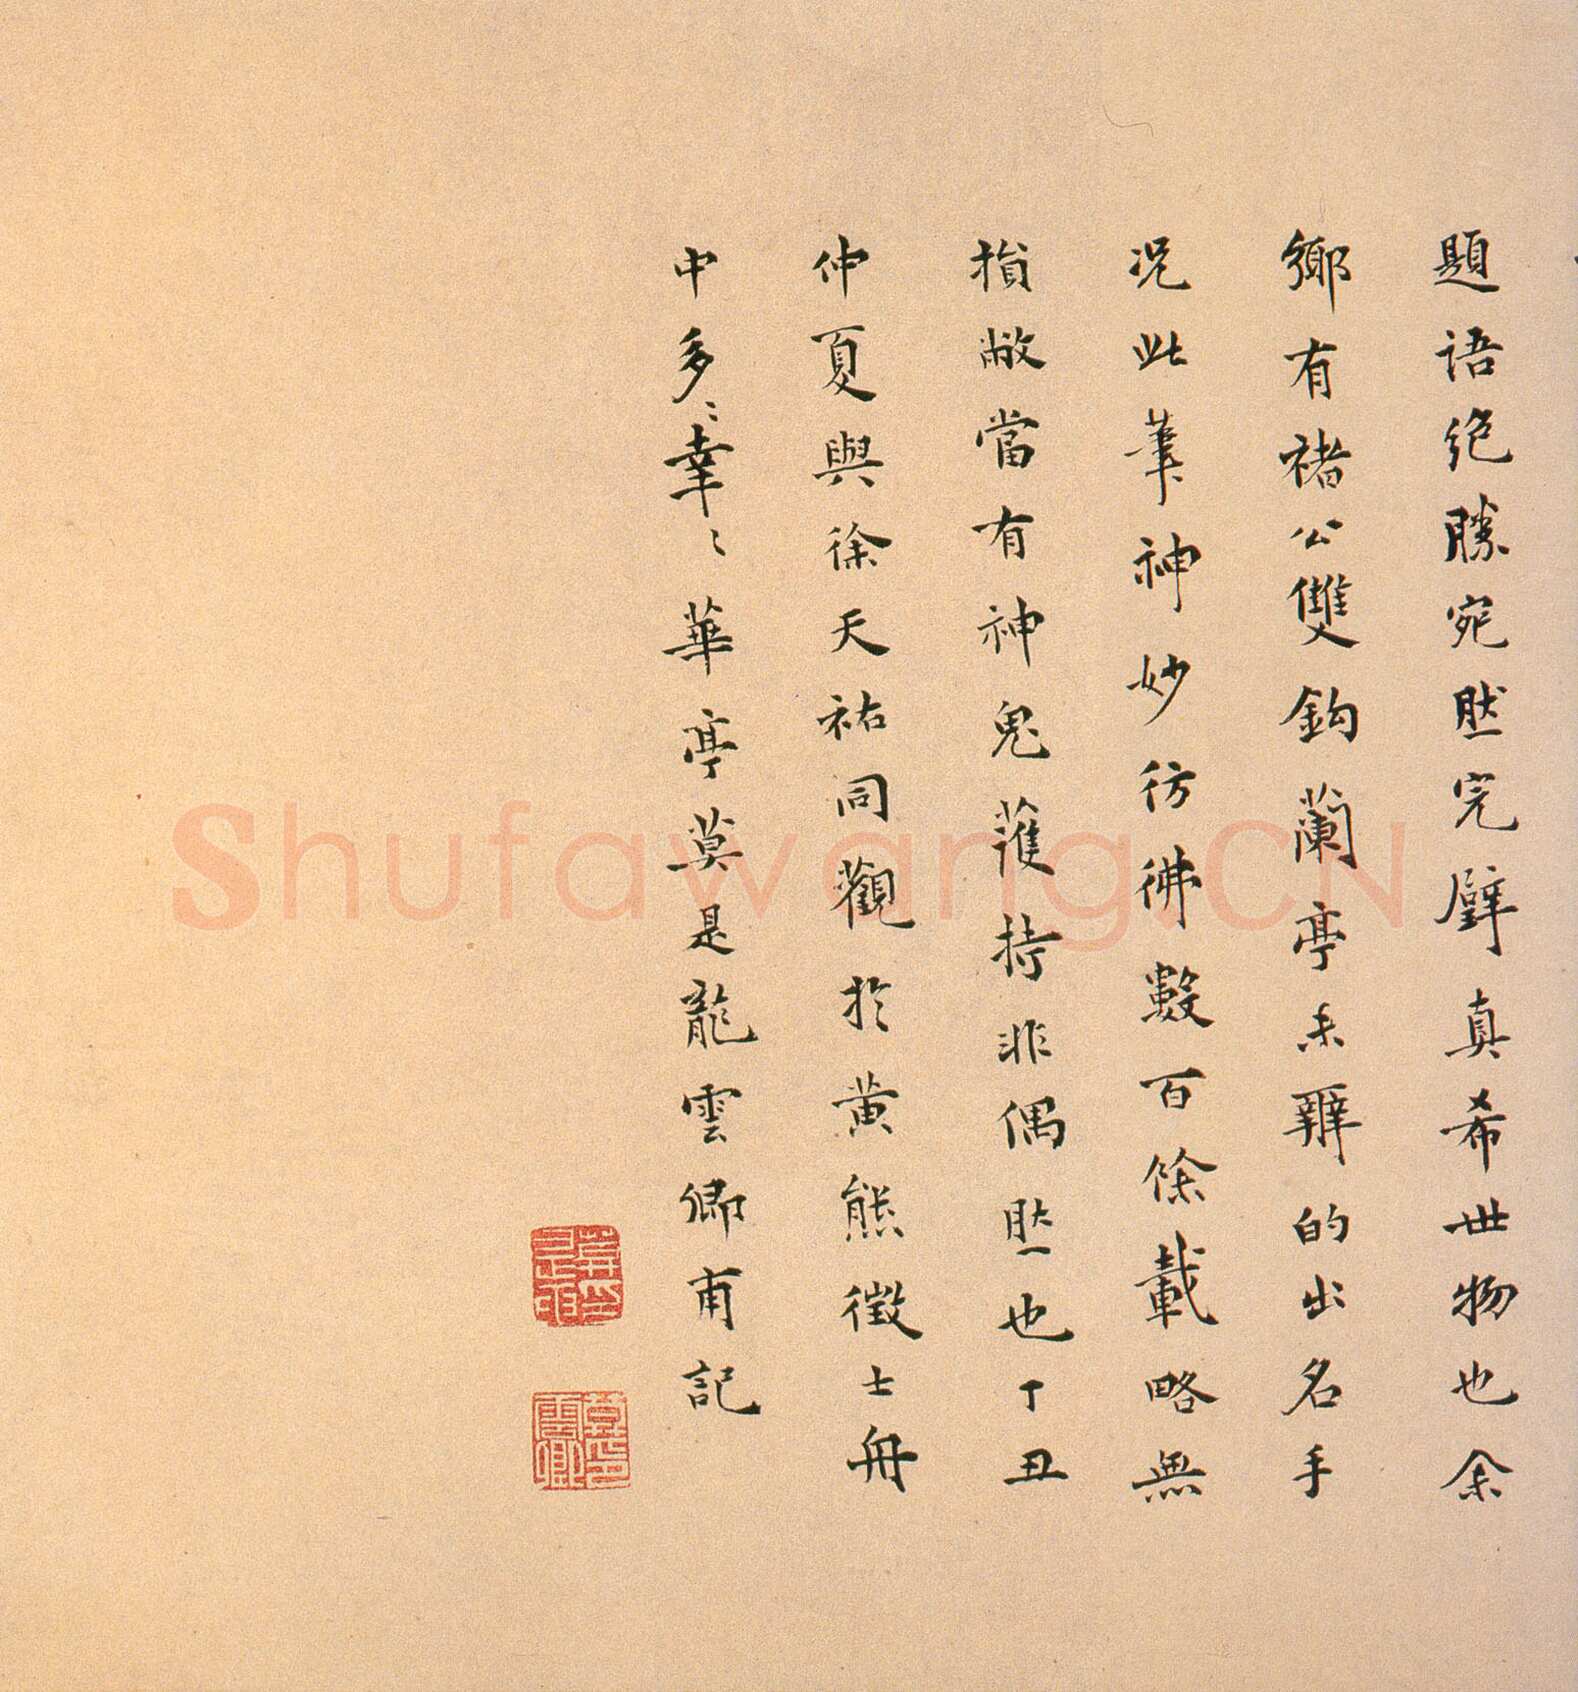 題語绝勝宛然完璧真希世物也余
鄉有褚公雙鈎蘭亭未辨的出名手
況此筆神妙彷彿數百餘載略無
損敝當有神鬼護持非偶然也丁丑
仲夏與徐天祐同觀於黃熊徵士舟
中多〻幸〻華亭莫是龍雲卿甫記
莫雲卿印
Shufawang.CN